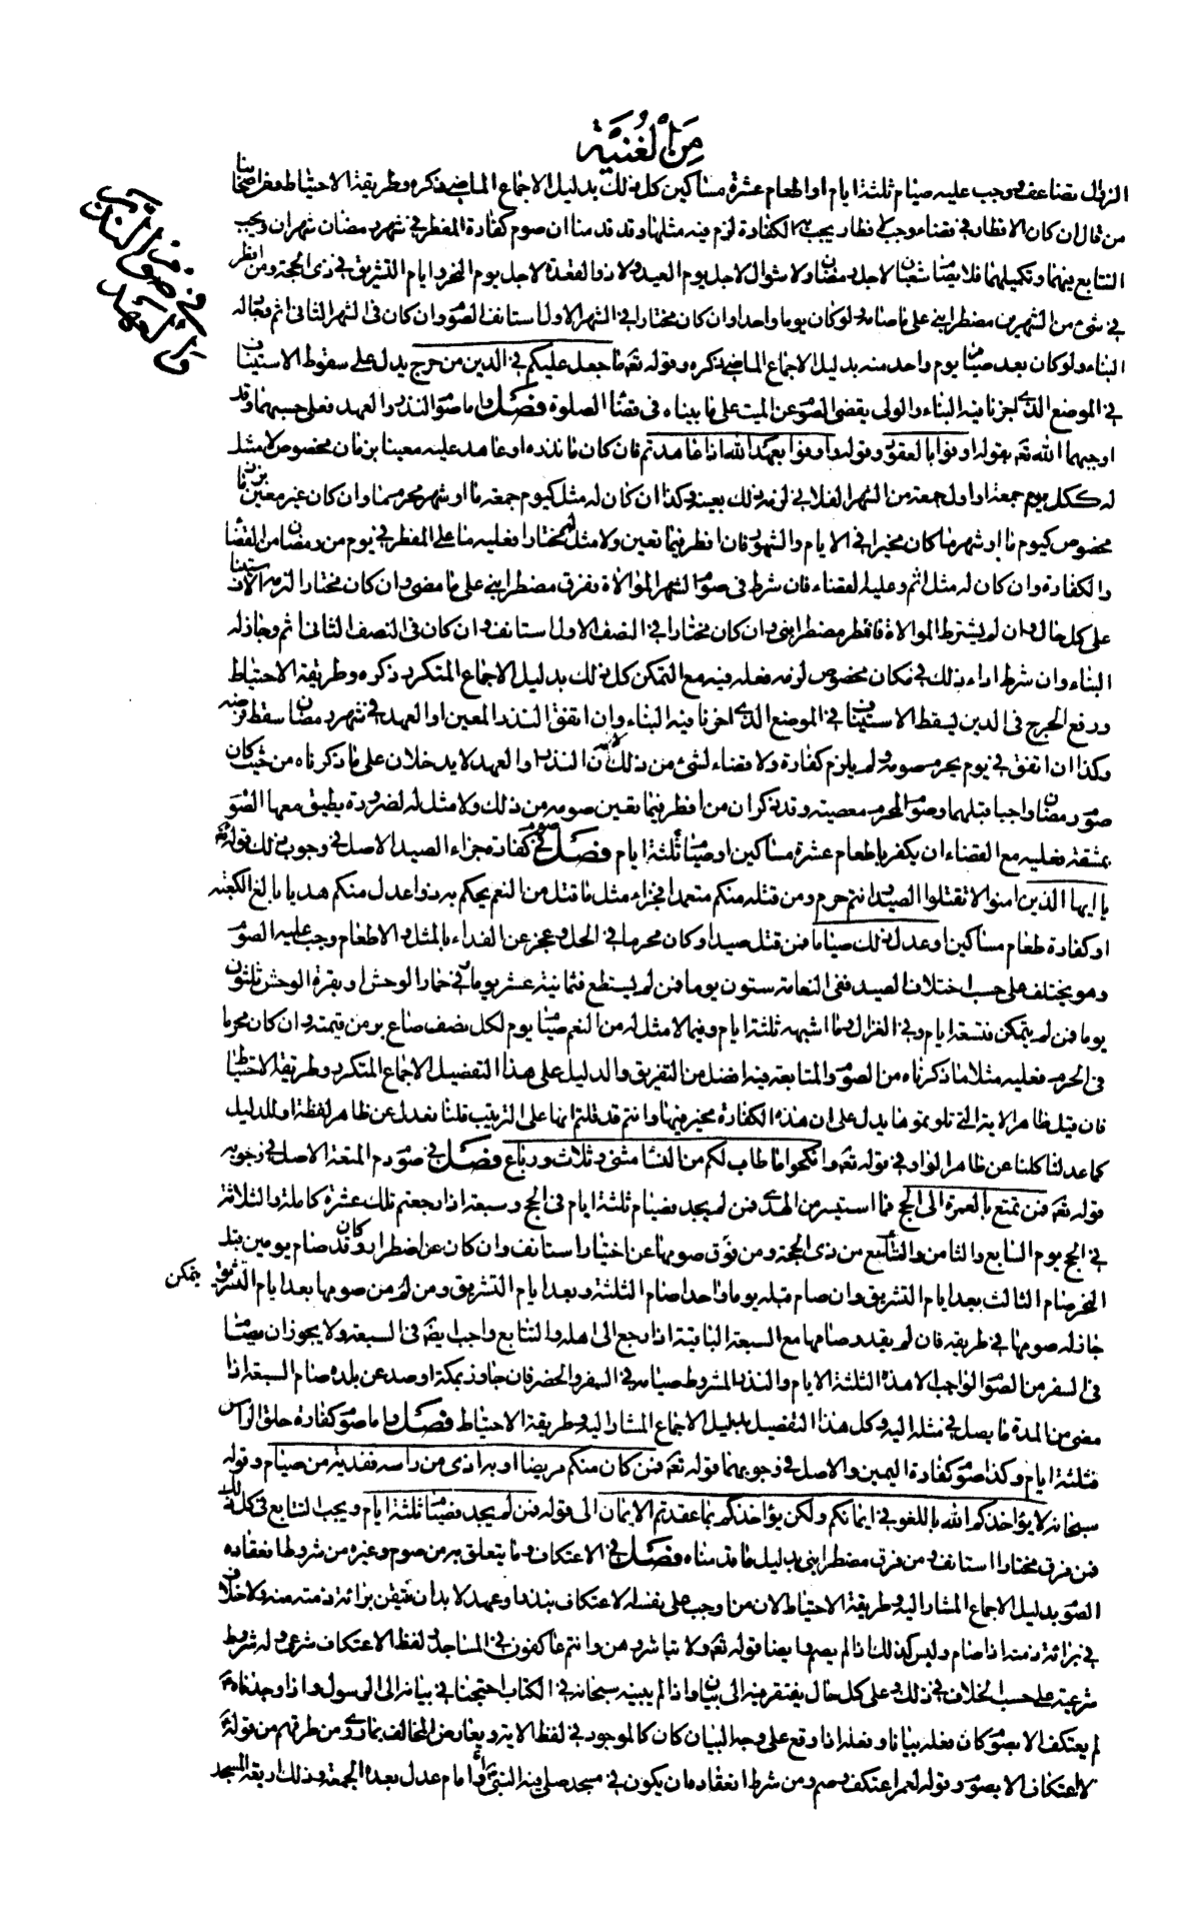 مِنَ الْغُنيَة
في صوم النذر
والعهد
الزوال فصاعدا وجب عليه صيام ثلثة ايام او اطعام عشرة مساكين كل ذلك بدليل الاجماع الماضي ذكره وطريقة الاحتياط وفي اصحابنا
من قال ان كان الافطار في قضاء وجب الكفارة لزم فيه مثلها وقد قدمنا ان صوم كفارة المفطر في شهر رمضان شهران ويجب
التتابع بينهما وتكميلهما فلا شعبان لاجل رمضان ولا شوال لاجل يوم العيد ولا ذو القعدة لاجل يوم النحر وايام التشريق في ذي الحجة ومن افطر
في شئ من الشهرين مضطرا بنى على ما صامه ولو كان يوما واحدا وان كان مختارا في الشهر الاول استانف الصوم وان كان في الشهر الثاني اثم وجاز له
البناء ولو كان بعد صيام يوم واحد منه بدليل الاجماع الماضي ذكره وقوله تعه ما جعل عليكم في الدين من حرج يدل على سقوط الاستيناف
في الموضع الذي اجزنا فيه البناء والولي يقضي الصوم عن الميت على ما بيناه في قضاء الصلوة فصل واما صوم النذر والعهد فعلى حسبهما وقد
اوجبهما الله تعه بقوله اوفوا بالعقود وقوله واوفوا بعهد الله اذا عاهدتم فان كان ما نذره او عاهد عليه معينا بزمان مخصوص لا مثل
له ككل يوم جمعة او اول جمعة من الشهر الفلاني لزمه ذلك بعينه وكذا ان كان له مثل كيوم جمعة ما او شهر محرم ما وان كان غير معين بزمان
مخصوص كيوم ما او شهر ما كان مخيرا في الايام والشهور فان افطر فيما تعين ولا مثل له مختارا فعليه ما على المفطر في يوم من رمضان من القضاء
والكفارة وان كان له مثل اثم وعليه القضاء فان شرط في صوم الشهر الموالاة ففرق مضطرا بنى على ما مضى وان كان مختارا لزمه الاستيناف
على كل حال وان لم يشترط الموالاة فافطر مضطرا بنى وان كان مختارا في النصف الاول استانف وان كان في النصف الثاني اثم وجاز له
البناء وان شرط اداء ذلك في مكان مخصوص لزمه فعله فيه مع التمكن كل ذلك بدليل الاجماع المتكرر ذكره وطريقة الاحتياط
ورفع الحرج في الدين يسقط الاستيناف في الموضع الذي اجزنا فيه البناء وان اتفق النذر المعين او العهد في شهر رمضان سقط فرضه
وكذا ان اتفق في يوم يحرم صومه ولم يلزم كفارة ولا قضاء لشئ من ذلك لان النذر والعهد لا يدخلان على ما ذكرناه من حيث كان
صوم رمضان واجبا قبلهما وصوم المحرم معصية وقد ذكر ان من افطر فيما تعين صومه من ذلك ولا مثل له لضرورة يطيق معها الصوم
بمشقة فعليه مع القضاء ان يكفر باطعام عشرة مساكين او صيام ثلثة ايام فصل في صوم كفارة جزاء الصيد الاصل في وجوب ذلك قوله تعه
يا ايها الذين امنوا لا تقتلوا الصيد وانتم حرم ومن قتله منكم متعمدا فجزاء مثل ما قتل من النعم يحكم به ذوا عدل منكم هديا بالغ الكعبة
او كفارة طعام مساكين او عدل ذلك صياما فمن قتل صيدا وكان محرما في الحل وعجز عن الفداء بالمثل والاطعام وجب عليه الصوم
وهو يختلف على حسب اختلاف الصيد ففي النعامة ستون يوما فمن لم يستطع فثمانية عشر يوما وفي حمار الوحش او بقرة الوحش ثلثون
يوما فمن لم يتمكن فتسعة ايام وفي الغزال وما اشبهه ثلثة ايام وفيما لا مثل له من النعم صيام يوم لكل نصف صاع بر من قيمته وان كان محرما
في الحرم فعليه مثلا ما ذكرناه من الصوم والمتابعة فيه افضل من التفريق والدليل على هذا التفصيل الاجماع المتكرر وطريقة الاحتياط
فان قيل ظاهر الاية التي تلوتموها يدل على ان هذه الكفارة مخير فيها وانتم قد قلتم انها على الترتيب قلنا نعدل عن ظاهر لفظة او للدليل
كما عدلنا كلنا عن ظاهر الواو في قوله تعه وانكحوا ما طاب لكم من النساء مثنى وثلاث ورباع فصل في صوم دم المتعة الاصل في وجوبه
قوله تعه فمن تمتع بالعمرة الى الحج فما استيسر من الهدي فمن لم يجد فصيام ثلثة ايام في الحج وسبعة اذا رجعتم تلك عشرة كاملة والثلاثة
في الحج يوم السابع والثامن والتاسع من ذي الحجة ومن فرق صومها عن اختيار استانف وان كان عن اضطرار وكان قد صام يومين قبل
النحر صام الثالث بعد ايام التشريق وان صام قبله يوما واحدا صام الثلثة وبعد ايام التشريق ومن لم يتمكن من صومها بعد ايام التشريق
جاز له صومها في طريقه فان لم يقدر صامها مع السبعة الباقية اذا رجع الى اهله والتتابع واجب ايضه في السبعة ولا يجوز ان يصام
في السفر من الصوم الواجب الا هذه الثلثة الايام والنذر المشروط صيامه في السفر والحضر فان جاوز بمكة او صد عن بلده صام السبعة اذا
مضى من المدة ما يصل في مثله اليه وكل هذا التفصيل بدليل الاجماع المشار اليه وطريقة الاحتياط فصل واما صوم كفارة حلق الراس
فثلثة ايام وكذا صوم كفارة اليمين والاصل في وجوبهما قوله تعه فمن كان منكم مريضا او به اذى من راسه ففدية من صيام وقوله
سبحانه لا يؤاخذكم الله باللغو في ايمانكم ولكن يؤاخذكم بما عقدتم الايمان الى قوله فمن لم يجد فصيام ثلثة ايام ويجب التتابع في كل ذلك
فمن فرق مختارا استانف ومن فرق مضطرا بنى بدليل ما قدمناه فصل في الاعتكاف وما يتعلق به من صوم وغيره من شروط انعقاده
الصوم بدليل الاجماع المشار اليه وطريقة الاحتياط لان من اوجب على نفسه الاعتكاف بنذر او عهد لا بد ان يتيقن برائة ذمته منه ولا خلاف
في برائة ذمته اذا صام وليس كذلك اذا لم يصم وايضا قوله تعه ولا تباشروهن وانتم عاكفون في المساجد لفظ الاعتكاف شرعي وله شروط
شرعية على حسب الخلاف في ذلك وعلى كل حال يفتقر فيه الى بيان واذا لم يبينه سبحانه في الكتاب احتجنا في بيانه الى الرسول واذا وجدناه
لم يعتكف الا بصوم كان فعله بيانا وفعله اذا وقع على وجه البيان كان كالموجود في لفظ الاية ويعارض المخالف بما روي من طرقهم من قوله
لا اعتكاف الا بصوم وقوله لعمر اعتكف وصم ومن شرط انعقاده ان يكون في مسجد صلى فيه النبي او امام عدل بعده الجمعة وذلك اربعة المسجد